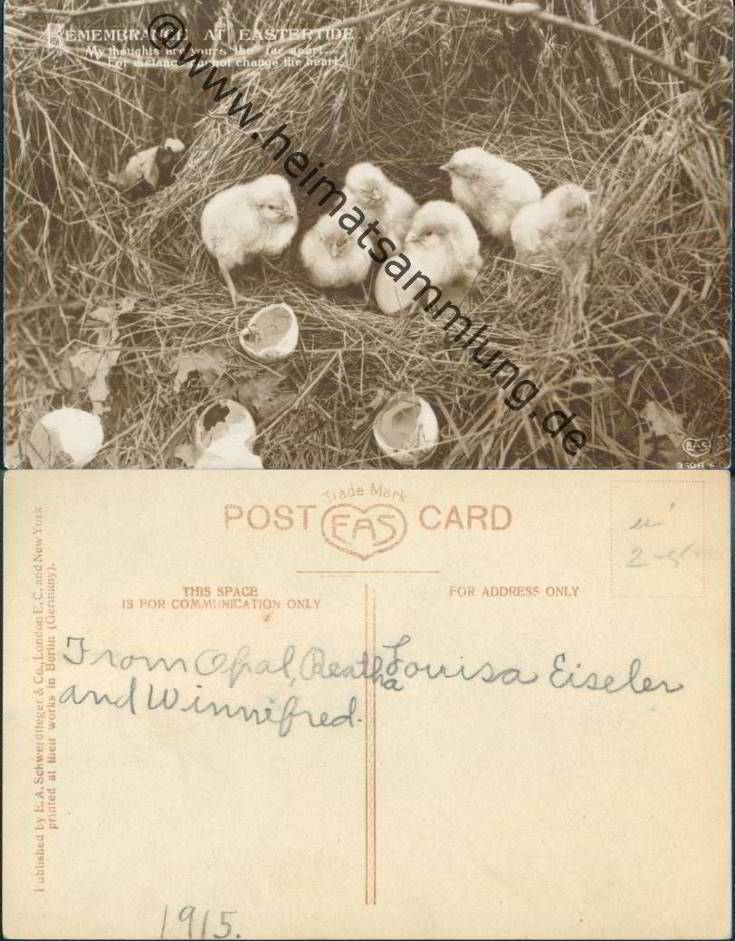 REMEMBRANCE AT EASTERTIDE
My thoughts are yours tho' far apart
For distance cannot change the heart
© www.heimatsammlung.de
EAS
Trade Mark
POST EAS CARD
THIS SPACE
IS FOR COMMUNICATION ONLY
FOR ADDRESS ONLY
Published by E. A. Schwerdtfeger & Co., London E. C. and New York
printed at their works in Berlin (Germany).
From Opal, Reatha
and Winnifred.
Louisa Eiseler
1915.